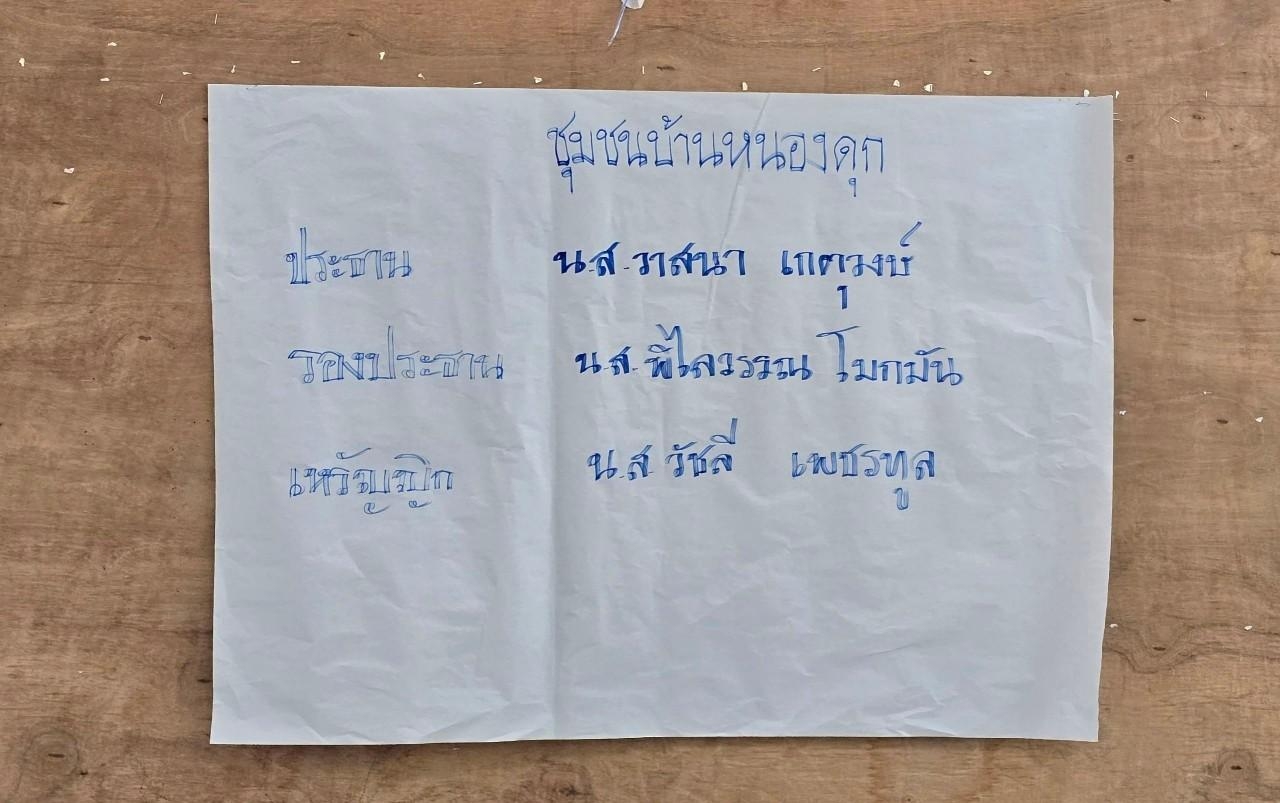 ชุมชนบ้านหนองดุก
ประธาน น.ส.วาสนา เกตุวงษ์
รองประธาน น.ส.พิไลวรรณ โมกมัน
เหรัญญิก น.ส.วัชลี เพชรทูล